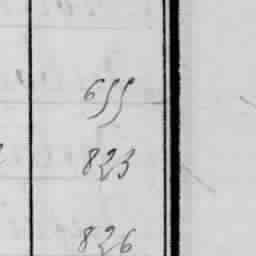 655
823
826